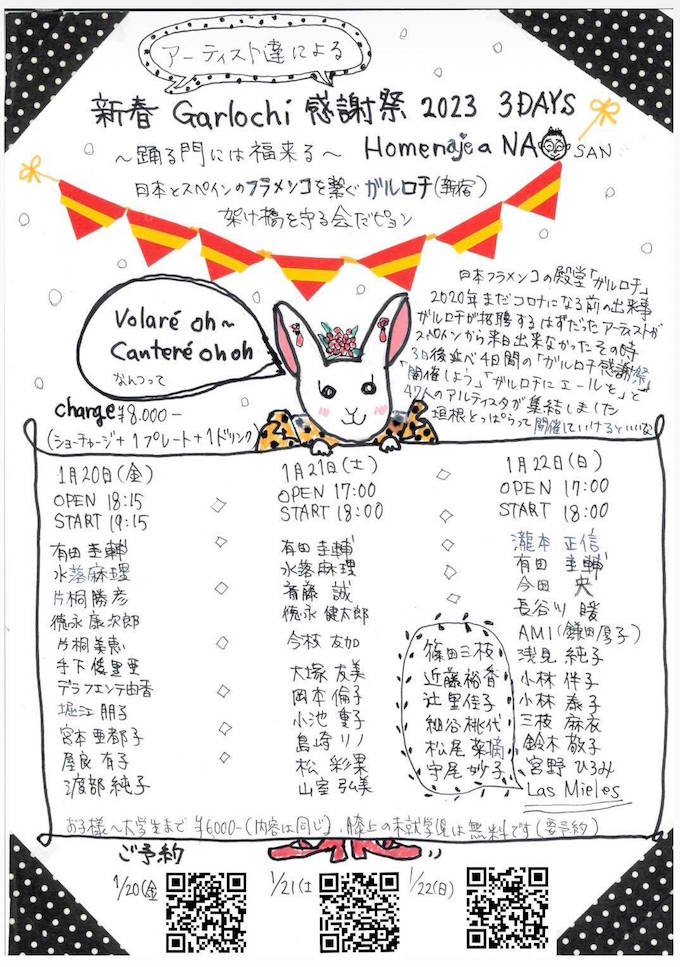 アーティスト達による
新春 Garlochi 感謝祭 2023 3DAYS
～踊る門には福来る～ Homenaje a NAO SAN
日本とスペインのフラメンコを繋ぐ ガルロチ(新宿)
架け橋を守る会だピョン
日本フラメンコの殿堂「ガルロチ」
2020年まだコロナになる前の出来事
ガルロチが招聘するはずだったアーティストが
スペインから来日出来なかったその時
3日後延べ4日間の「ガルロチ感謝祭
開催しよう」「ガルロチにエールを」と
47人のアルティスタが集結しました
垣根とっぱらって開催していけるといいな
Volaré oh~
Canteré oh oh
なんつって
charge ¥8.000-
(ショーチャージ+1プレート+1ドリンク)
1月20日(金)
OPEN 18:15
START 19:15
有田 圭輔
水落麻理
片桐勝彦
徳永康次郎
片桐美恵
手下倭里亜
デラフエンテ由香
堀江 朋子
宮本亜都子
屋良 有子
渡部 純子
1月21日(土)
OPEN 17:00
START 18:00
有田 圭輔
水落麻理
斎藤 誠
徳永 健太郎
今枝 友加
大塚 友美
岡本 倫子
小池 重子
島崎 リノ
松 彩果
山室 弘美
1月22日(日)
OPEN 17:00
START 18:00
瀧本 正信
有田 圭輔
今田 央
長谷川 暖
AMI(鎌田厚子)
浅見 純子
小林 伴子
小林 泰子
三枝 麻衣
鈴木 敬子
宮野 ひろみ
Las Mieles
篠田三枝
近藤裕香
辻 里佳子
細谷桃代
松尾 葉摘
守尾 妙子
お子様～大学生まで ¥6000-(内容は同じ)、膝上の未就学児は無料です(要予約)
ご予約
1/20(金
1/21(土
1/22(日)